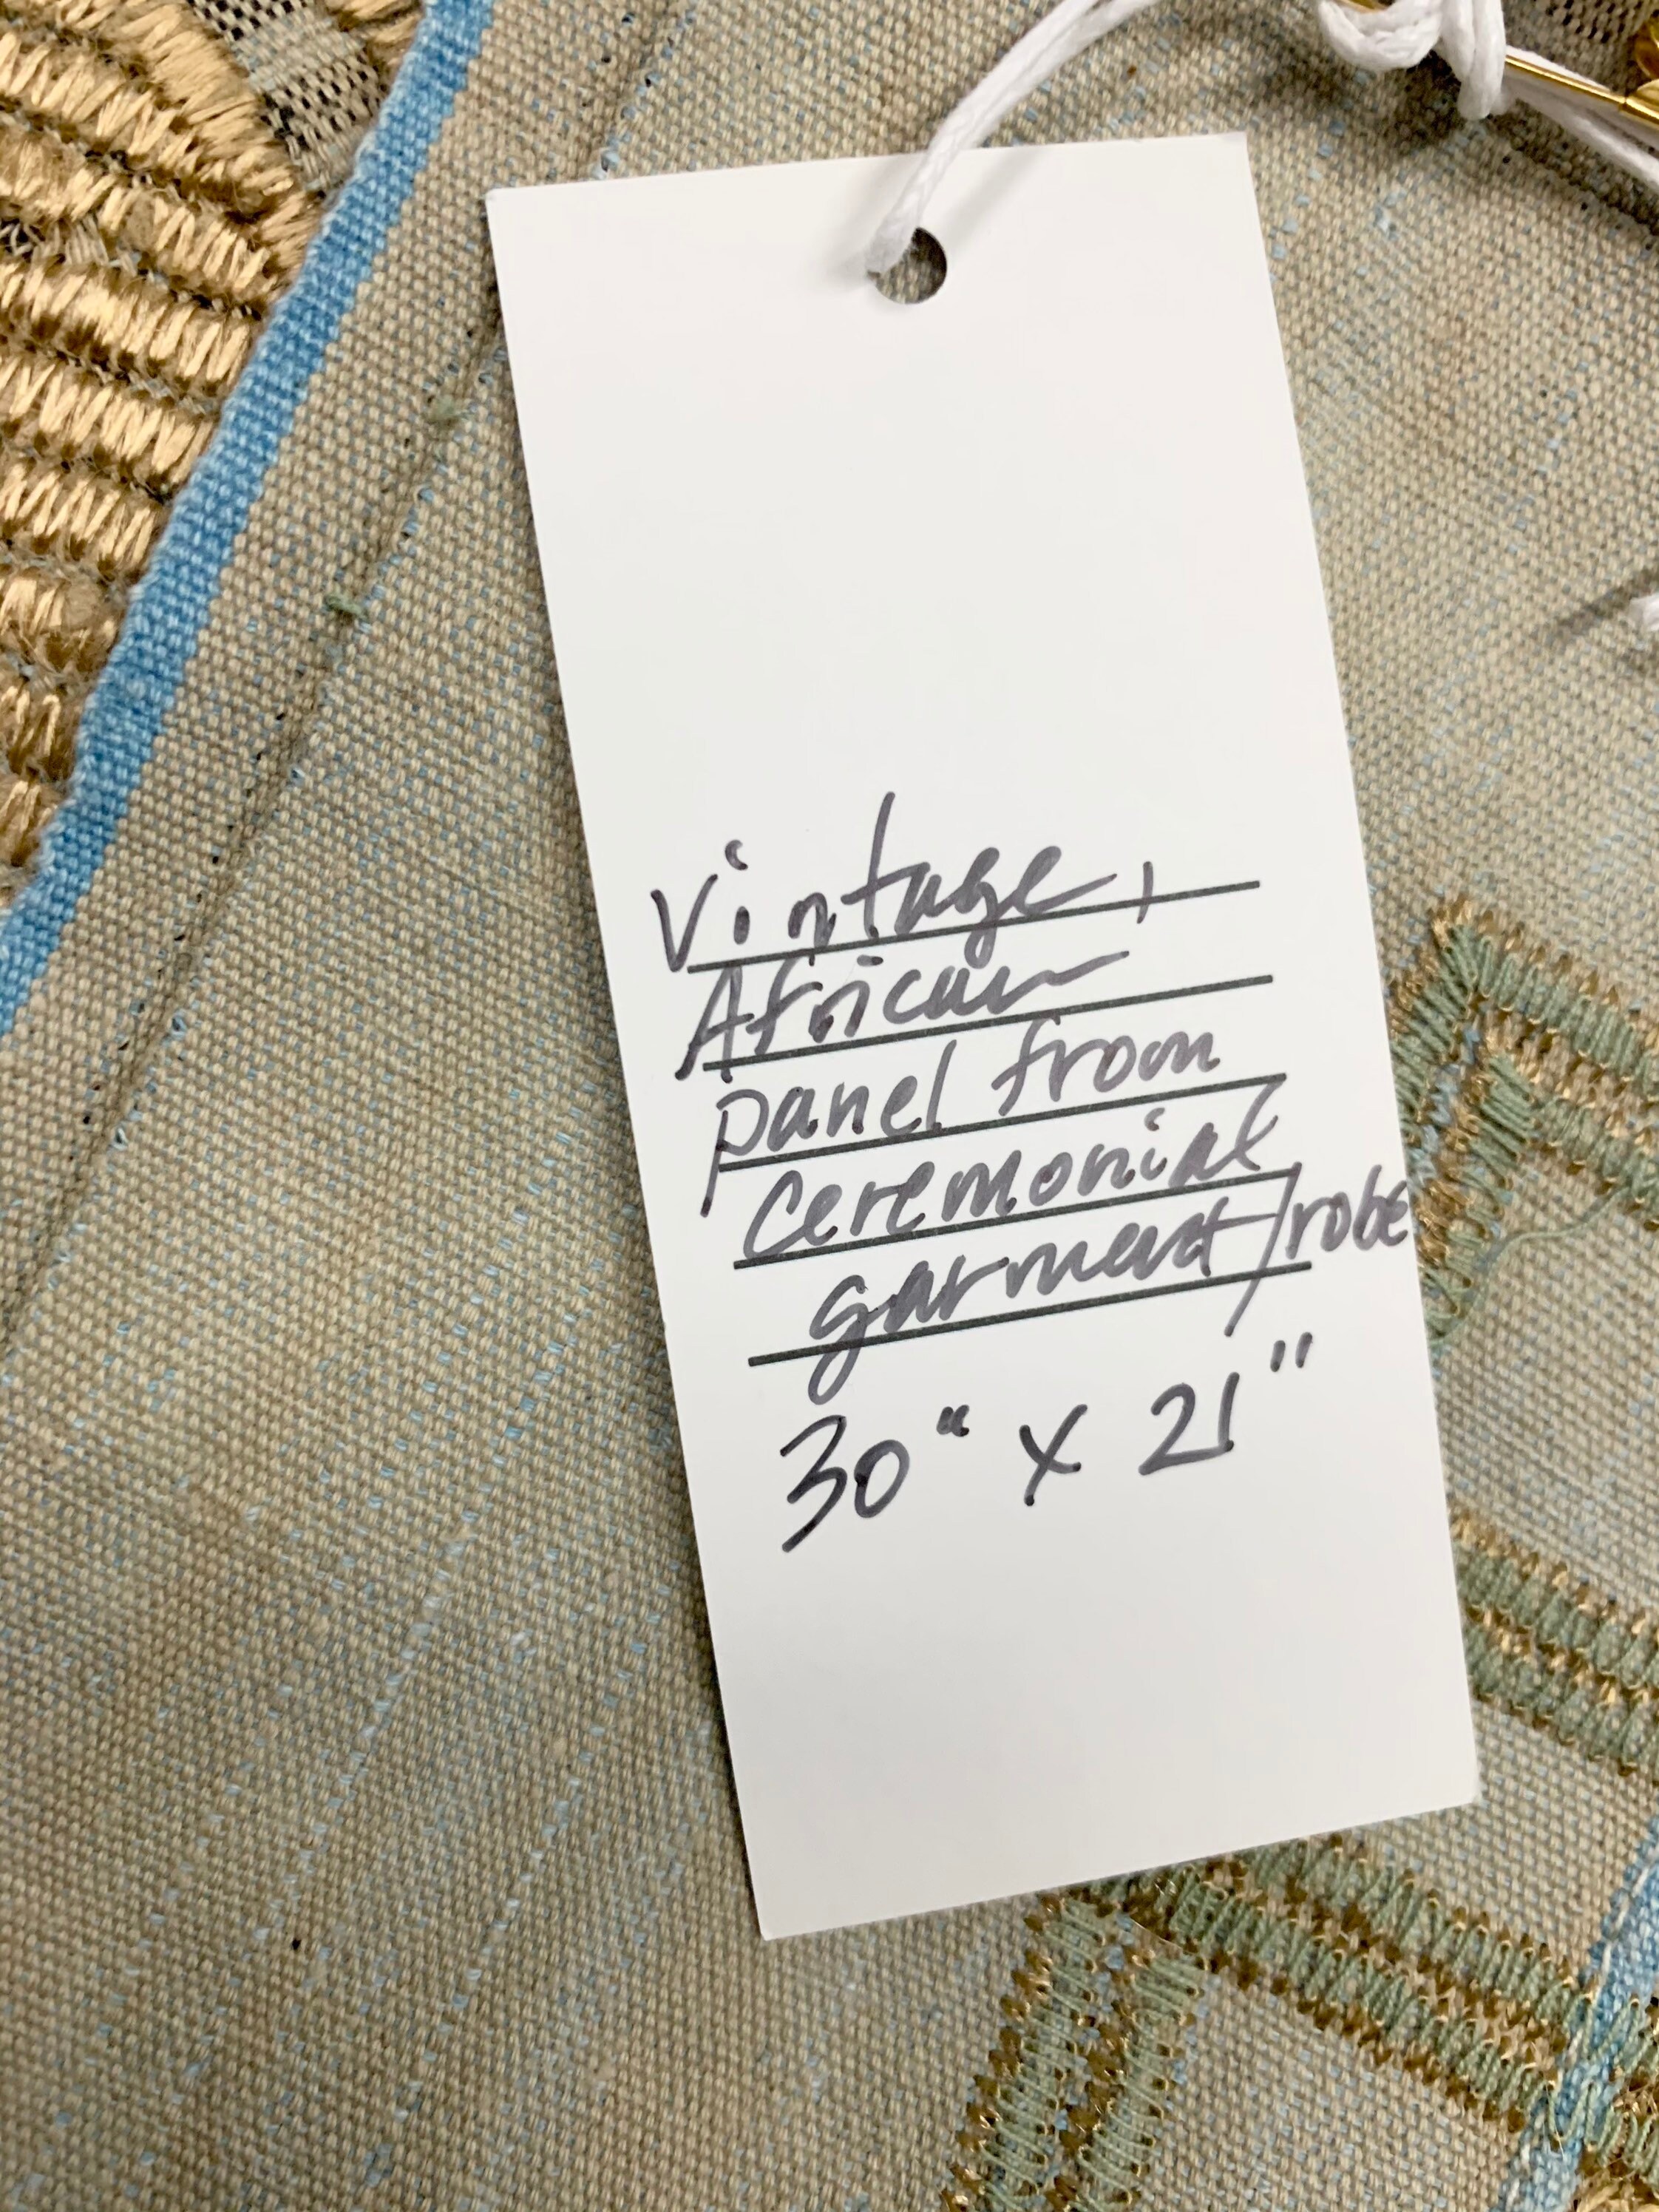 Vintage,
African
panel from
Ceremonial
garment/robe
30" x 21"